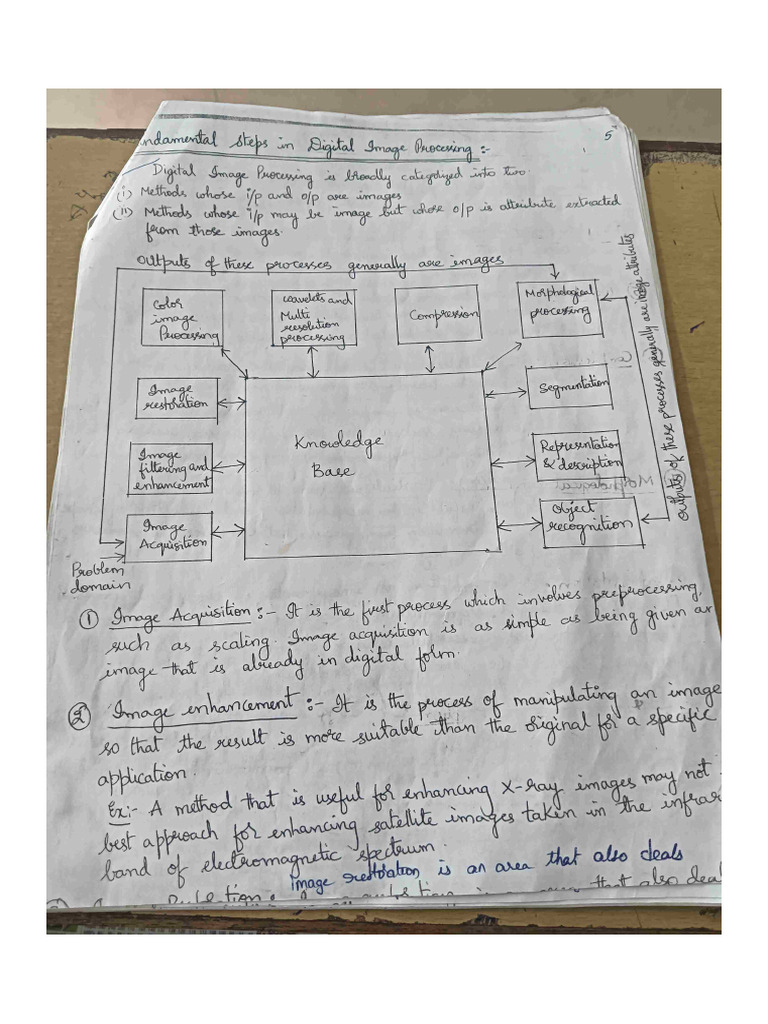 ndamental Steps in Digital Image Processing :-
5
Digital Image Processing is broadly categorized into two:
(i) Methods whose i/p and o/p are images
(ii) Methods whose i/p may be image but whose o/p is attribute extracted
from those images.
outputs of these processes generally are images
Color
image
Processing
wavelets and
Multi
resolution
processing
Compression
Morphological
processing
Image
restoration
Segmentation
Knowledge
Base
Image
filtering and
enhancement
Representation
& description
Image
Acquisition
Object
recognition
outputs of these processes generally are image attributes
Problem
domain
① Image Acquisition :- It is the first process which involves preprocessing,
such as scaling. Image acquisition is as simple as being given an
image that is already in digital form.
② Image enhancement :- It is the process of manipulating an image
so that the result is more suitable than the original for a specific
application.
Ex:- A method that is useful for enhancing X-ray images may not
best approach for enhancing satellite images taken in the infrar
band of electromagnetic spectrum.
Image restoration is an area that also deals
that also dea